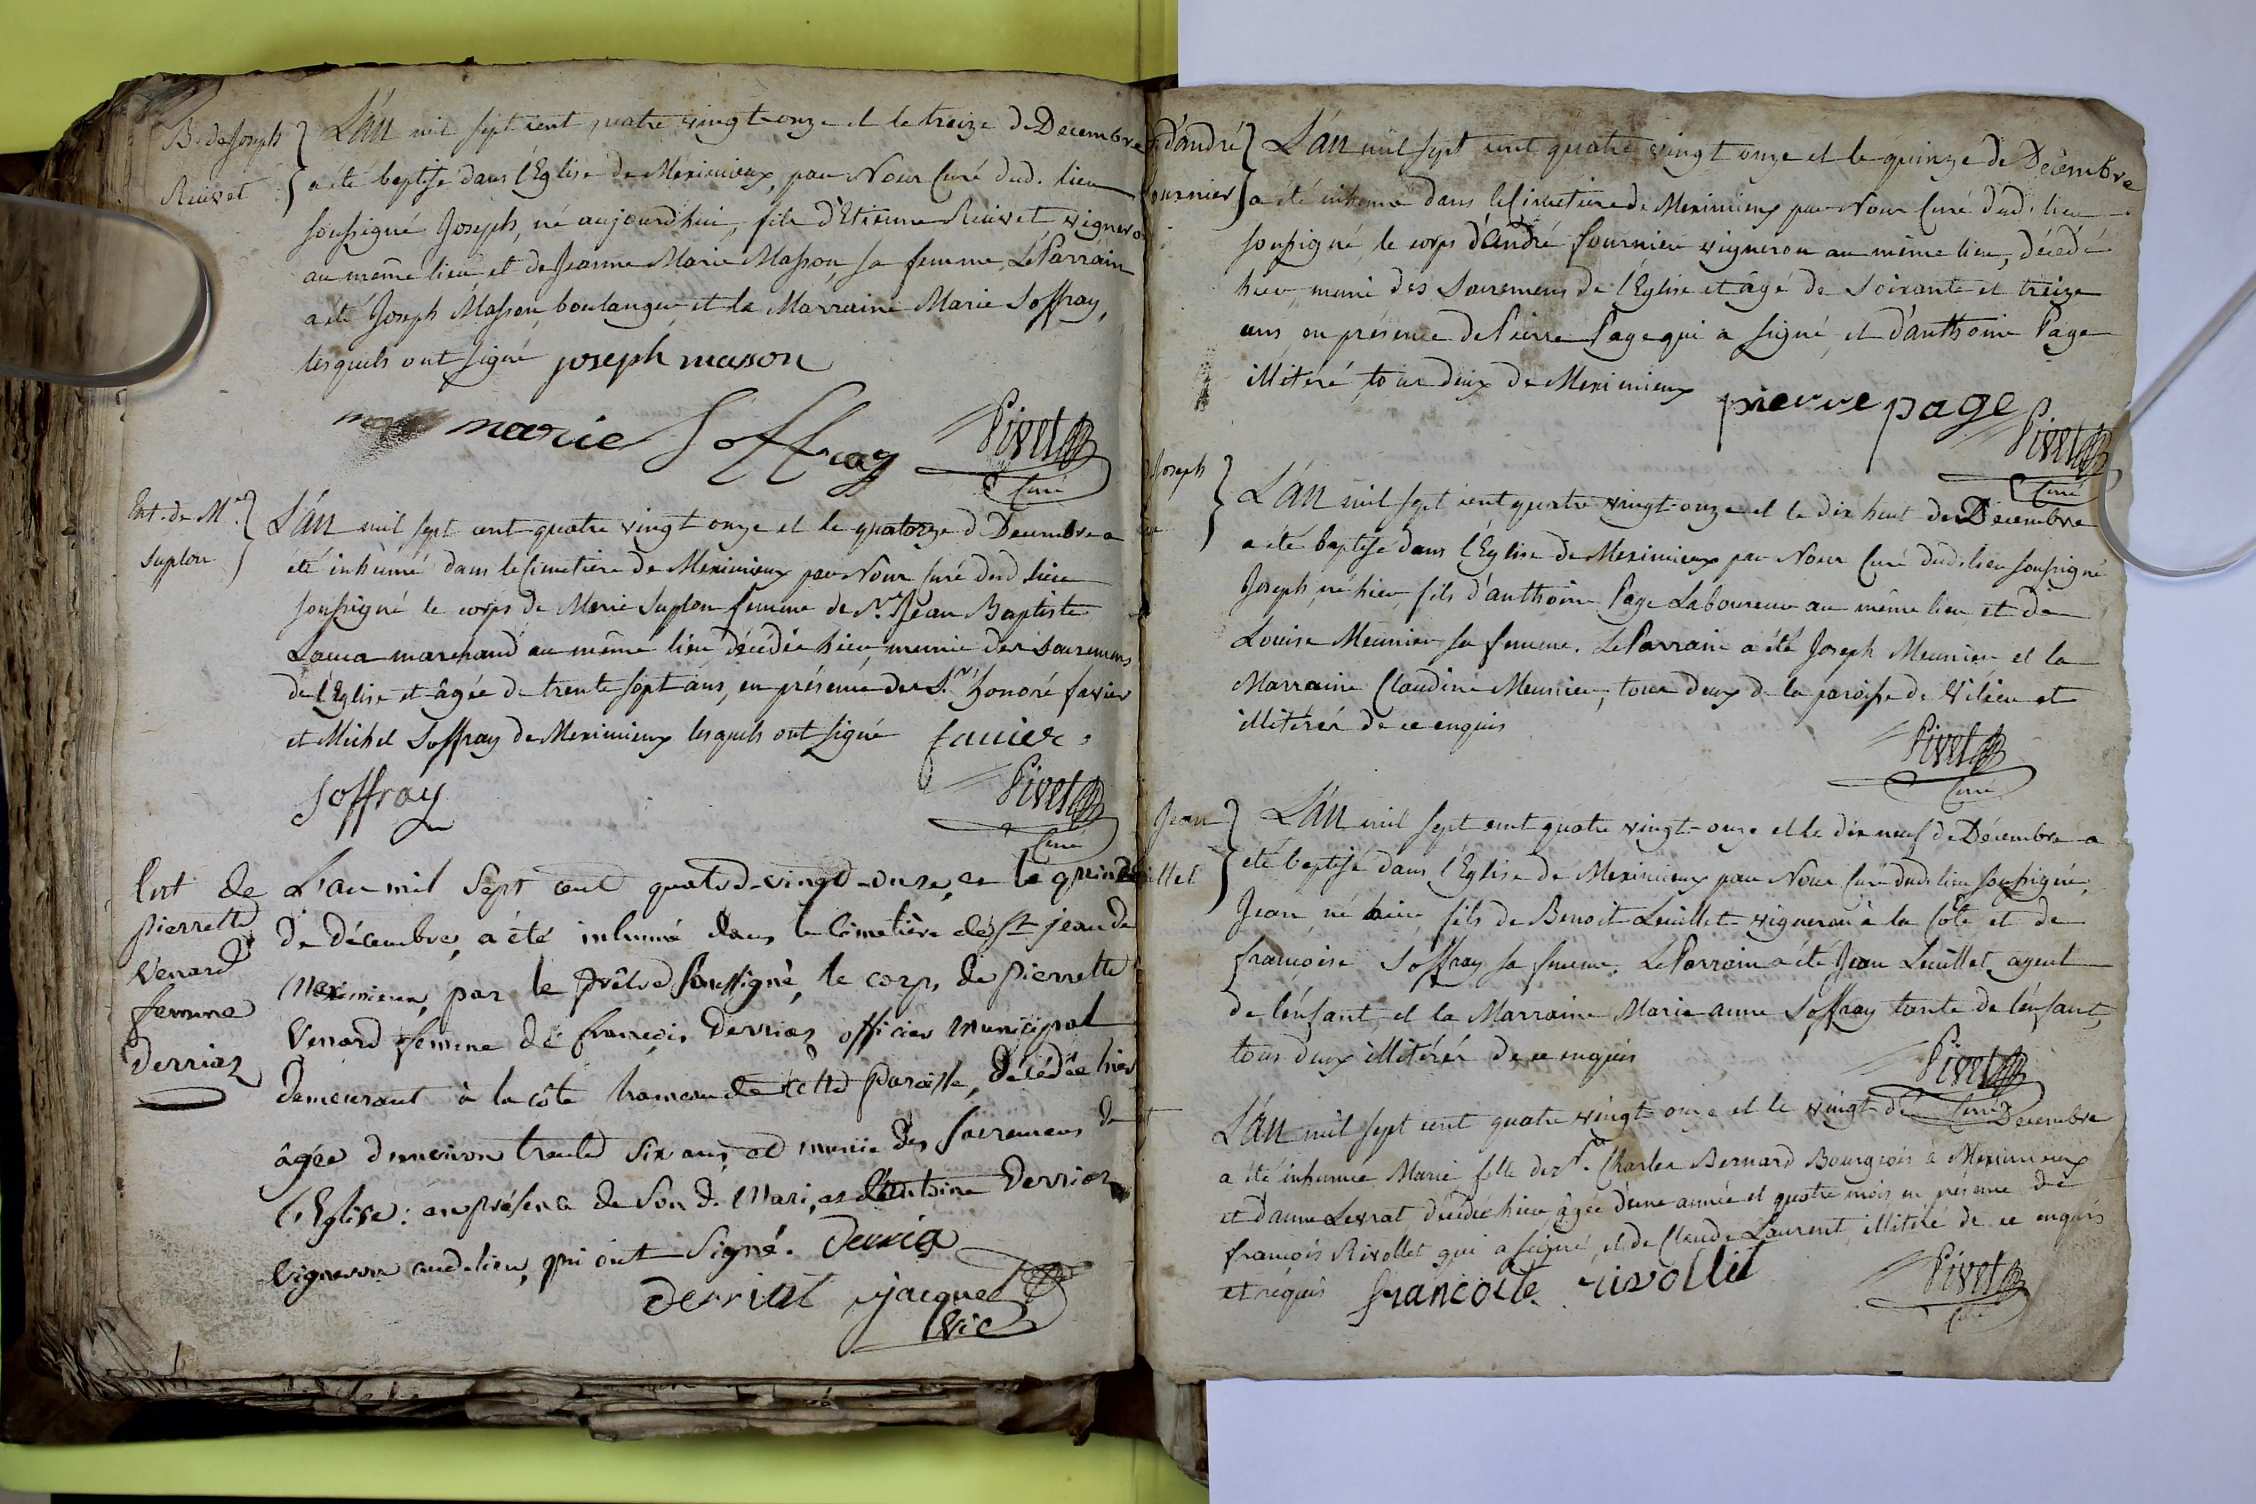 B. de Joseph
Reuvet
L'an mil sept cent quatre vingt onze et le treize de Decembre
a été baptisé dans l'Eglise de Meximieux, par Nous Curé dud. lieu
soussigné Joseph, né aujourd'hui, fils d'Etienne Reuvet vigneron
au même lieu et de Jeanne Marie Masson sa femme, Le Parrain
a été Joseph Masson boulanger et la Marraine Marie Soffray,
lesquels ont signé joseph masson
marie Soffray Pivet
Curé
Ent. de Mie
Suplon
L'an mil sept cent quatre vingt onze et le quatorze de Decembre a
été inhumé dans le Cimetiere de Meximieux par Nous Curé dud. lieu
soussigné le corps de Marie Suplon femme de Sr. Jean Baptiste
marchand au même lieu, décédée hier, munie des Sacremens
de l'Eglise et âgée de trente sept ans, en présence des Srs. honoré favier
et Michel Soffray de Meximieux lesquels ont signé favier
Soffray Pivet
Curé
Ent de
pierrette
Venard
femme
Derriaz
L'an mil sept cent quatre-vingt-onze, et le quinze
de décembre, a été inhumé dans le cimetière de St jean de
Meximieux, par le prêtre soussigné, le corps de pierrette
Venard femme de françois Derriaz officier municipal
demeurant à la côte hameau de cette paroisse, décédée hier
âgée d'environ trente six ans, et munie des sacremens de
l'Eglise: en présence de son d. Mari, et d'Antoine Derriaz
vigneron aud. lieu, qui ont signé. Derria
derriat jacquet
Vic
d'andré
fournier
L'an mil sept cent quatre vingt onze et le quinze de Décembre
a été inhumé dans le Cimetiere de Meximieux par Nous Curé dud. lieu
soussigné le corps d'andré fournier vigneron au même lieu, décédé
hier, muni des Sacremens de l'Eglise et âgé de soixante et treize
ans, en présence de Pierre Page qui a signé, et d'anthoine Page
illitéré, tous deux de Meximieux pierre page
Pivet
Curé
Joseph
L'an mil sept cent quatre vingt-onze et le dix huit de Décembre
a été baptisé dans l'Eglise de Meximieux par Nous Curé dud. lieu soussigné
Joseph, né hier, fils d'anthoine Page Laboureur au même lieu et de
Louise Meunier sa femme. Le Parrain a été Joseph Meunier et la
Marraine Claudine Meunier, tous deux de la paroisse de Vilieu et
illitérés de ce enquis
Pivet
Curé
Jean
L'an mil sept cent quatre vingt-onze et le dix neuf de Décembre a
été baptisé dans l'Eglise de Meximieux par Nous Curé dud. lieu soussigné,
Jean, né hier, fils de Benoit Luillet vigneron à la Côte et de
françoise Soffray sa femme. Le Parrain a été Jean Luillet ayeul
de l'enfant, et la Marraine Marie anne Soffray tante de l'enfant,
tous deux illitérés de ce enquis
Pivet
Curé
L'an mil sept cent quatre vingt onze et le vingt de Décembre
a été inhumée Marie fille de Sr. Charles Bernard Bourgeois à Meximieux
et d'anne Levrat, décédée hier, âgée d'une année et quatre mois en présence de
françois Rivollet qui a signé, et de Claude Laurent, illitéré de ce enquis
et requis francoite rivollit Pivet
Curé